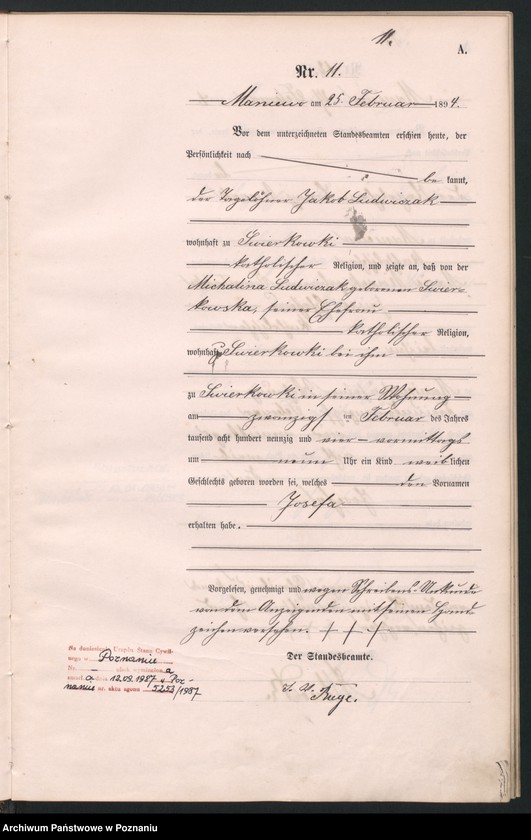 11.
A.
Nr. 11.
Maniewo am 25. Februar 1894.
Vor dem unterzeichneten Standesbeamten erschien heute, der
Persönlichkeit nach
be kannt,
der Tagelöhner Jakob Ludwiczak
wohnhaft zu Swierkowki
katholischer Religion, und zeigte an, daß von der
Michalina Ludwiczak geborenen Swier-
kowska, seiner Ehefrau
katholischer Religion,
wohnhaft Swierkowki bei ihm
zu Swierkowki in seiner Wohnung
am zwanzigst ten Februar des Jahres
tausend acht hundert neunzig und vier vormittags
um neun Uhr ein Kind weib lichen
Geschlechts geboren worden sei, welches den Vornamen
Josefa
erhalten habe.
Vorgelesen, genehmigt und wegen Schreibens-Unkunde
von dem Anzeigenden mit seinem Hand
zeichen versehen. + + +
Der Standesbeamte.
Na doniesienie Urzędu Stanu Cywil-
nego w Poznaniu
a
12.09.1987 w Poz-
naniu nr. aktu zgonu 5253/1987
J. V.
Archiwum Państwowe w Poznaniu